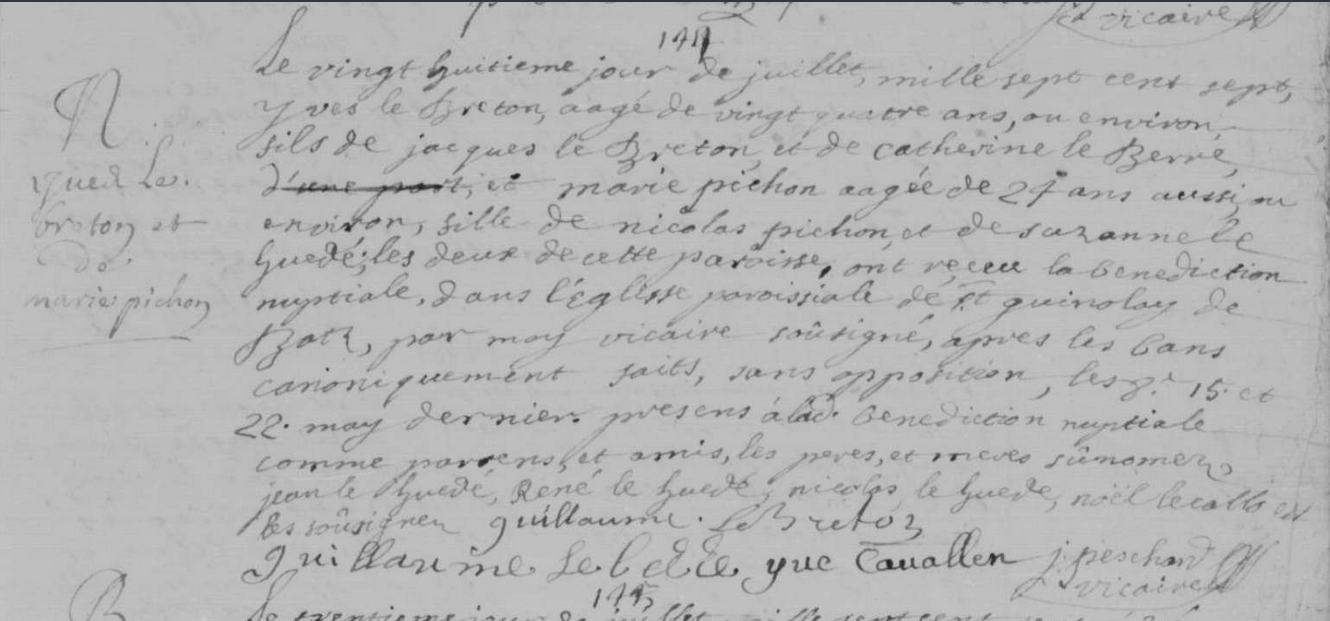 vicaire
Le vingt huitieme jour de juillet, mille sept cent sept,
yves le Breton, aagé de vingt quatre ans, ou environ,
fils de jacques le Breton, et de catherine le Berre,
d'une part, et marie pichon aagée de 24 ans aussi, ou
environ, fille de nicolas pichon, et de suzanne le
huedé; les deux de cette paroisse, ont receu la benediction
nuptiale, dans l'Eglisse paroissiale de st guinolay de
Batz, par moy vicaire soûsigné, apres les bans
canoniquement faits, sans opposition, les 8. 15. et
22. may dernier. presens à lad. benediction nuptiale
comme parens, et amis, les peres, et meres sûnomez,
jean le huedé, René le huedé, nicolas le huede, noël lecallo et
les soûsignez guillaume. Le Breton
guillaume Le bede yue Cauallen j. peschard
vicaire
N
yued Le.
breton et
de
marie pichon
B
Le trentieme jour de juillet mille sept cent